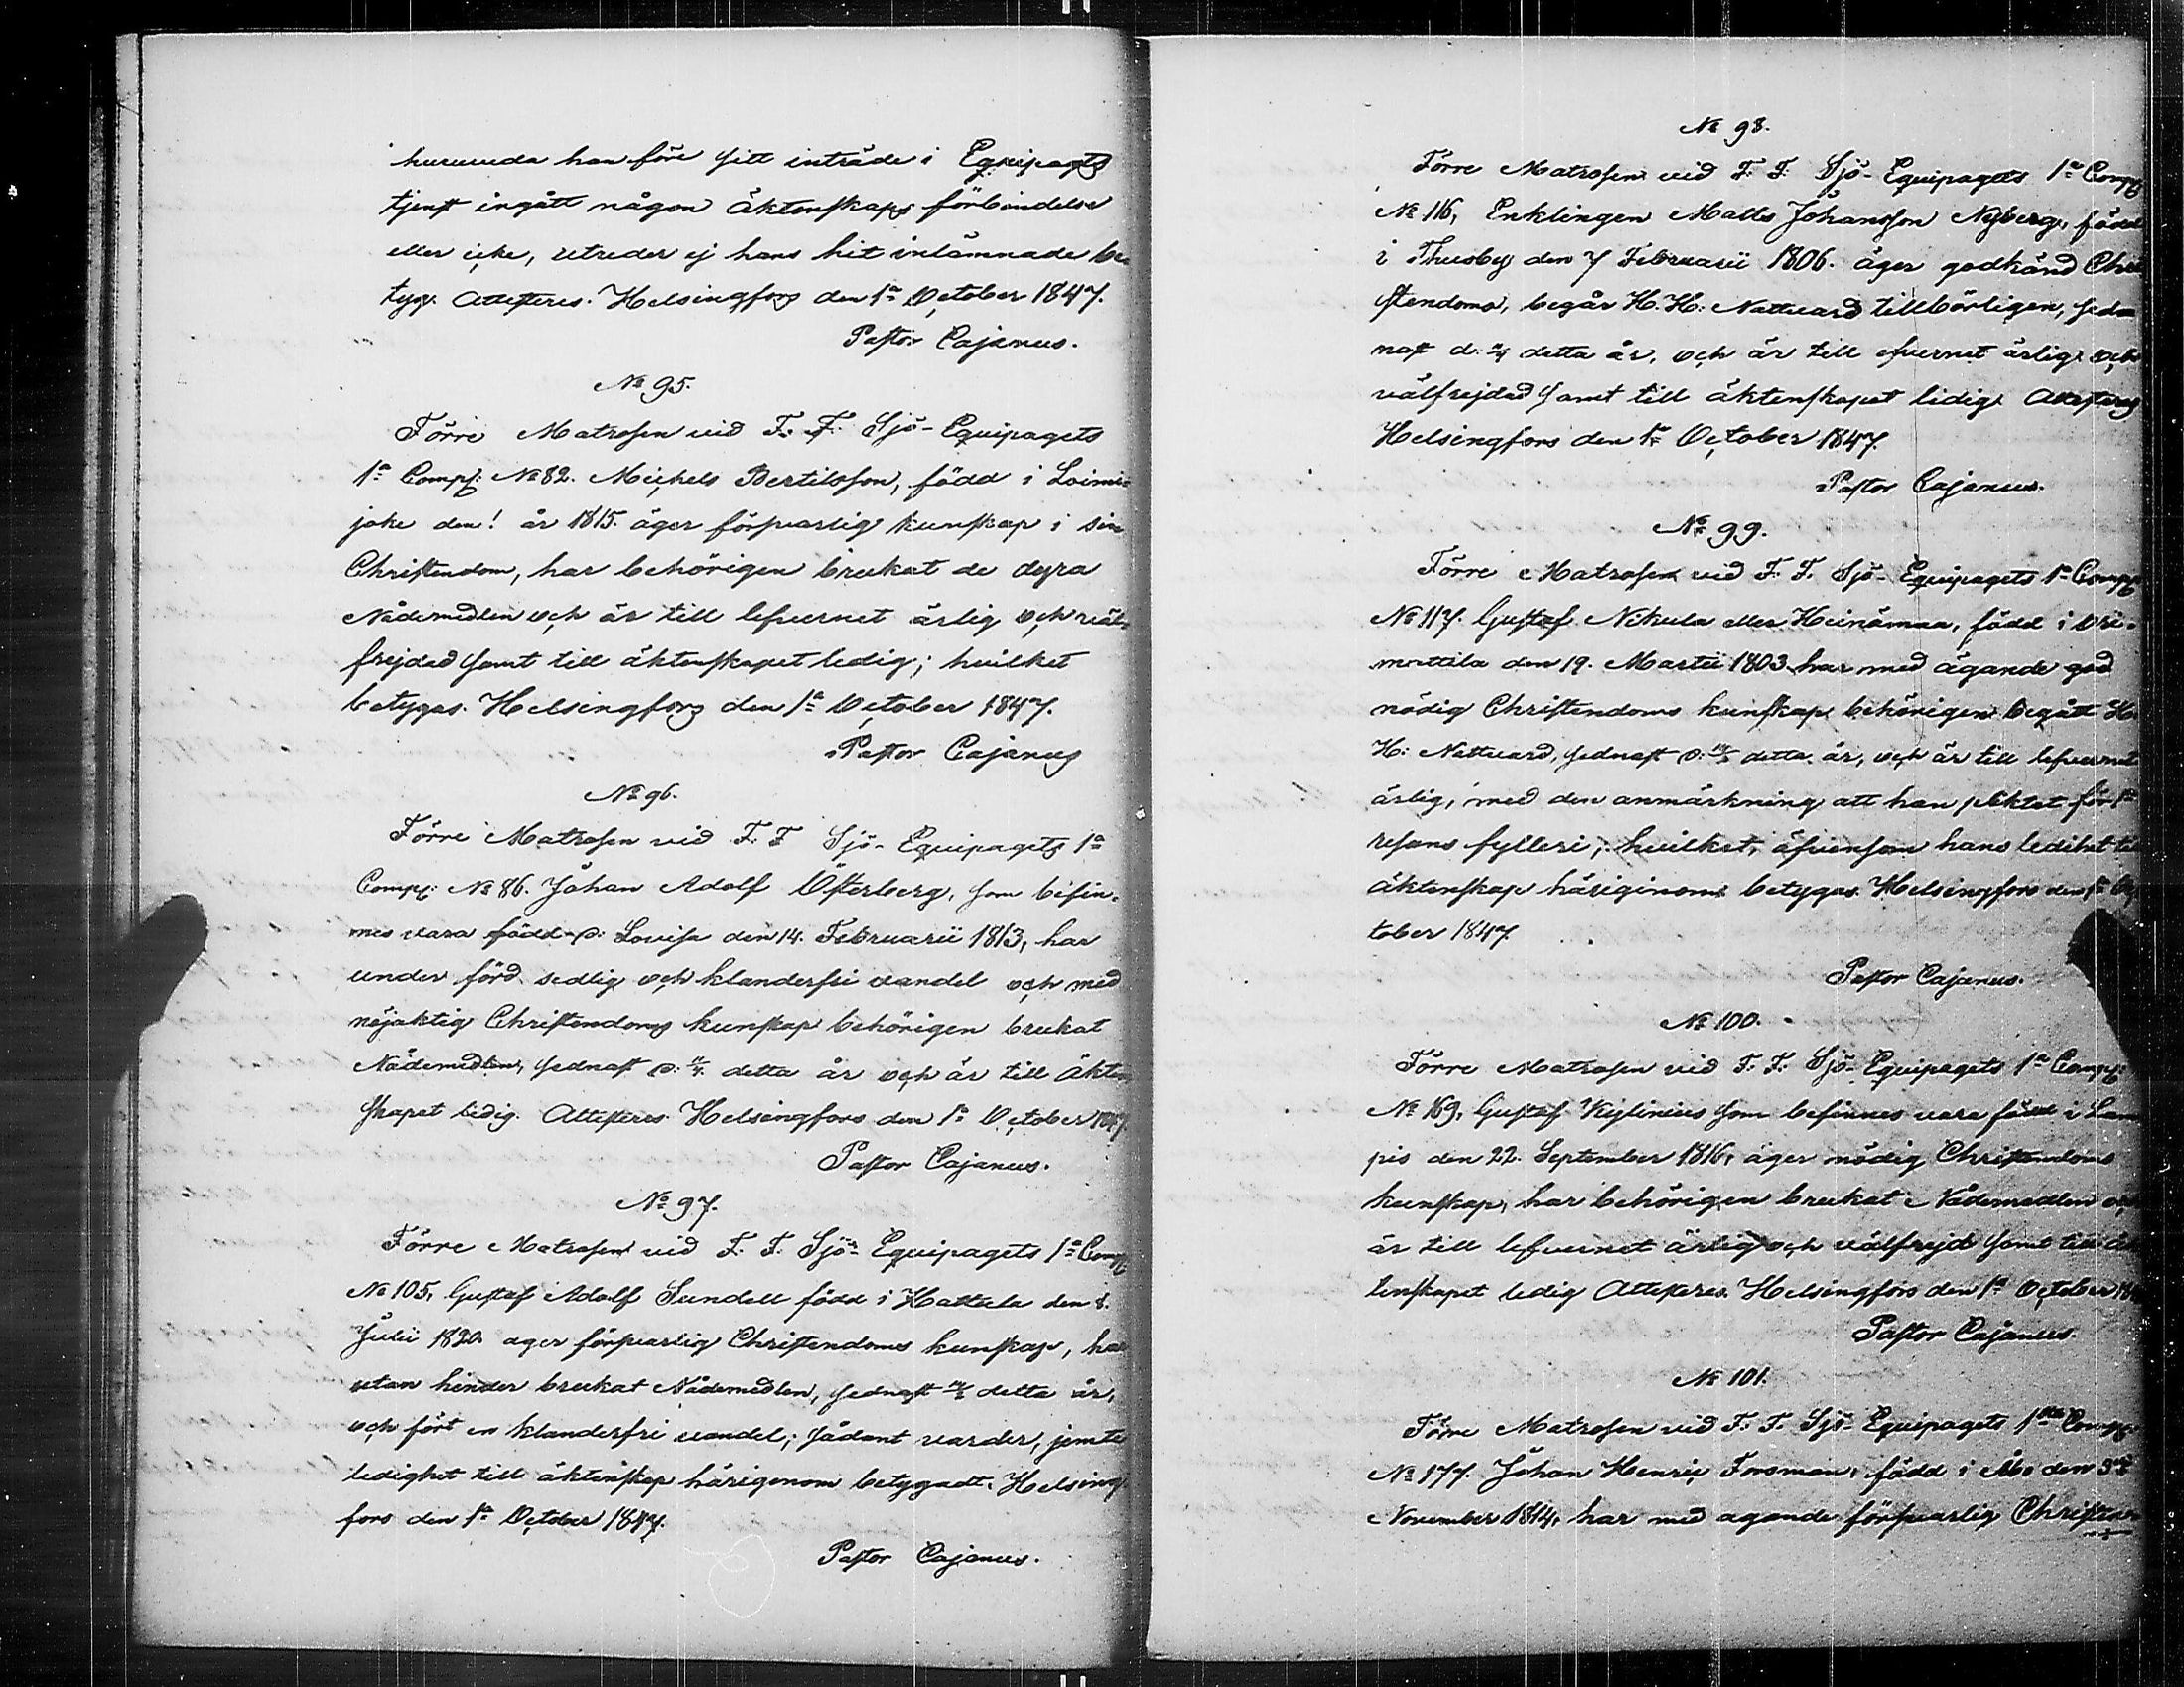 huruvida han före sitt inträde i Equipagets
tjenst ingått någon äktenskaps förbindelse
eller icke, utreder ej hans hit inlämnade be
tyg. Attesteras. Helsingfors den 1a October 1847.
Pastor Cajanus.
No 95.
Förre Matrosen vid F. F. Sjö-Equipagets
1a Comp: No 82. Michels Bertilsson, född i Loimi-
joke den! år 1815. äger försvarlig kunskap i sin
Christendom, har behörigen brukat de dyra
Nådemedlen och är till lefvernet ärlig och väl-
frejdad samt till äktenskapet ledig; hvilket
betygas. Helsingfors den 1a October 1847.
Pastor Cajanus
No 96.
Förre Matrosen vid F. F Sjö-Equipagets 1a
Comp: No 86. Johan Adolf Österberg, som befin-
nes vara född i Lovisa den 14. Februarii 1813, har
under förd sedlig och klanderfri vandel och med
nöjaktig Christendoms kunskap behörigen brukat
Nådemedlen, sednast d. detta år och är till äkten
skapet ledig. Attesteras Helsingfors den 1a October 1847
Pastor Cajanus.
No 97.
Förre Matrosen vid F. F. Sjö-Equipagets 1a Comp
No 105, Gustaf Adolf Sundell född i Hattula den 8.
Julii 1820. ager försvarlig Christendoms kunskap, har
utan hinder brukat Nådemedlen, sednast detta år,
och fört en klanderfri vandel; sådant varder, jemte
ledighet till äktenskap härigenom betygadt. Helsing
fors den 1a October 1847.
Pastor Cajanus.
No 98.
Förre Matrosen vid F. F. Sjö-Equipagets 1a Comp
No 116, Enklingen Matts Johansson Nyberg, född
i Thusby den 7 Februarii 1806. äger godkänd Chri
stendoms, begår H. H: Nattvard tillbörligen, seda
nast d: detta år, och är till lefvernet ärlig och
välfrejdad samt till äktenskapet ledig Attesteras
Helsingfors den 1a October 1847.
Pastor Cajanus.
No 99.
Förre Matrosen vid F. F. Sjö-Equipagets 1a Comp
No 117. Gustaf Nikula eller Heinämaa, född i Ori-
mattila den 19. Martii 1803 har med ägande god
nödig Christendoms kunskap behörigen begått H.
H: Nattvard, sednast d: detta år, och är till lefvernet
ärlig, med den anmärkning att han pliktat för 1a
resans fylleri; hvilket, äfvensom hans ledihet till
äktenskap häriginom betygas Helsingfors den 1a Oc
tober 1847.
Pastor Cajanus.
No 100.
Förre Matrosen vid F. F. Sjö-Equipagets 1a Comp:
No 169, Gustaf Kylinius som befinnes vara född i Lam
pis den 22. September 1816, äger nödig Christendoms
kunskap, har behörigen brukat Nådemedlen och
är till lefvernet ärlig och välfrejd samt till äk
tenskapet ledig Attesteras. Helsingfors den 1a October 184
Pastor Cajanus.
No 101.
Förre Matrosen vid F. F. Sjö-Equipagets 1sta Comp:
No 177. Johan Henric Forsman, född i Åbo den 3
November 1814, har med agande försvarlig Christen